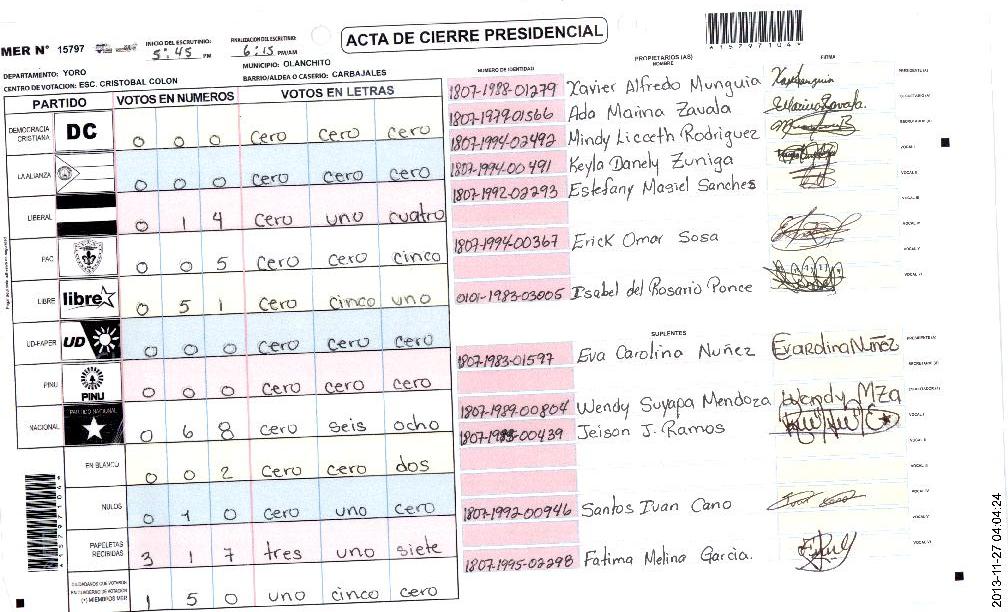 ACTA DE CIERRE PRESIDENCIAL
MER N° 15797
INICIO DEL ESCRUTINIO: 5:45 PM
FINALIZACION DEL ESCRUTINIO: 6:15 PM/AM
DEPARTAMENTO: YORO
MUNICIPIO: OLANCHITO
CENTRO DE VOTACION: ESC. CRISTOBAL COLON
BARRIO/ALDEA O CASERIO: CARBAJALES
PARTIDO VOTOS EN NUMEROS VOTOS EN LETRAS
DEMOCRACIA CRISTIANA DC 0 0 0 cero cero cero
LA ALIANZA 0 0 0 cero cero cero
LIBERAL 0 1 4 cero uno cuatro
PAC 0 0 5 cero cero cinco
LIBRE libre 0 5 1 cero cinco uno
UD-FAPER UD 0 0 0 cero cero cero
PINU PINU 0 0 0 cero cero cero
NACIONAL PARTIDO NACIONAL 0 6 8 cero seis ocho
EN BLANCO 0 0 2 cero cero dos
NULOS 0 1 0 cero uno cero
PAPELETAS RECIBIDAS 3 1 7 tres uno siete
CIUDADANOS QUE VOTARON EN CUADERNO DE VOTACION (+) MIEMBROS MER 1 5 0 uno cinco cero
157971049
PROPIETARIOS (AS)
NUMERO DE IDENTIDAD NOMBRE FIRMA
1807-1988-01279 Xavier Alfredo Munguia PRESIDENTE (A)
1807-1979-01566 Ada Marina Zavala SECRETARIO (A)
1807-1994-02492 Mindy Licceth Rodriguez
1807-1994-00491 Keyla Danely Zuniga VOCAL I
1807-1992-02293 Estefany Masiel Sanches VOCAL II
VOCAL III
1807-1994-00367 Erick Omar Sosa VOCAL IV
VOCAL V
0101-1983-03005 Isabel del Rosario Ponce VOCAL VI
SUPLENTES
1807-1983-01597 Eva Carolina Nuñez Evarolina Nuñez PRESIDENTE (A)
SECRETARIO (A)
1807-1989-00804 Wendy Suyapa Mendoza Wendy MZa
Jeison J. Ramos VOCAL I
VOCAL II
VOCAL III
1807-1992-00946 Santos Ivan Cano VOCAL IV
VOCAL V
1807-1995-02298 Fatima Melina Garcia. VOCAL VI
157971049
2013-11-27 04:04:24